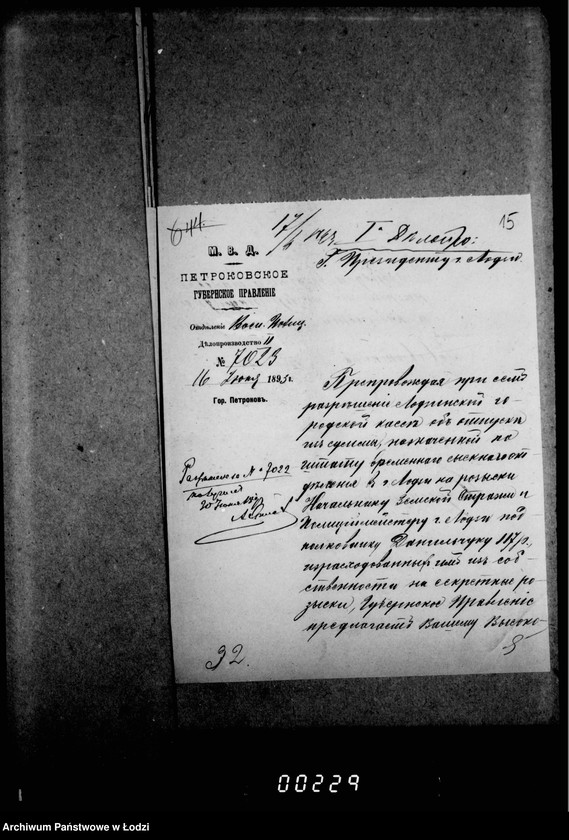 644.
15
I<sup>е</sup> Дѣлопро:
М. В. Д.
Г. Президенту г. Лодзи
ПЕТРОКОВСКОЕ
ГУБЕРНСКОЕ ПРАВЛЕНІЕ
Отдѣленіе Воен. Полиц.
Дѣлопроизводство II
№ 7023
16 Іюня 1893 г.
Гор. Петроковъ.
Препровождая при семъ
разрѣшеніе Лодзинской го-
родской кассѣ объ отпускѣ
изъ суммы, назначенной по
штату временнаго сыскнаго от-
дѣленія въ г. Лодзи на розыски
Начальнику Земской Стражи и
Полиціймейстеру г. Лодзи под-
полковнику Данильчуку 117 р.,
израсходованныхъ имъ изъ соб-
ственности на секретные ро-
зыски, Губернское Правленіе
предлагаетъ Вашему Высоко-
№ 7022
получилъ
20 Іюня
32.
00229
Archiwum Państwowe w Łodzi